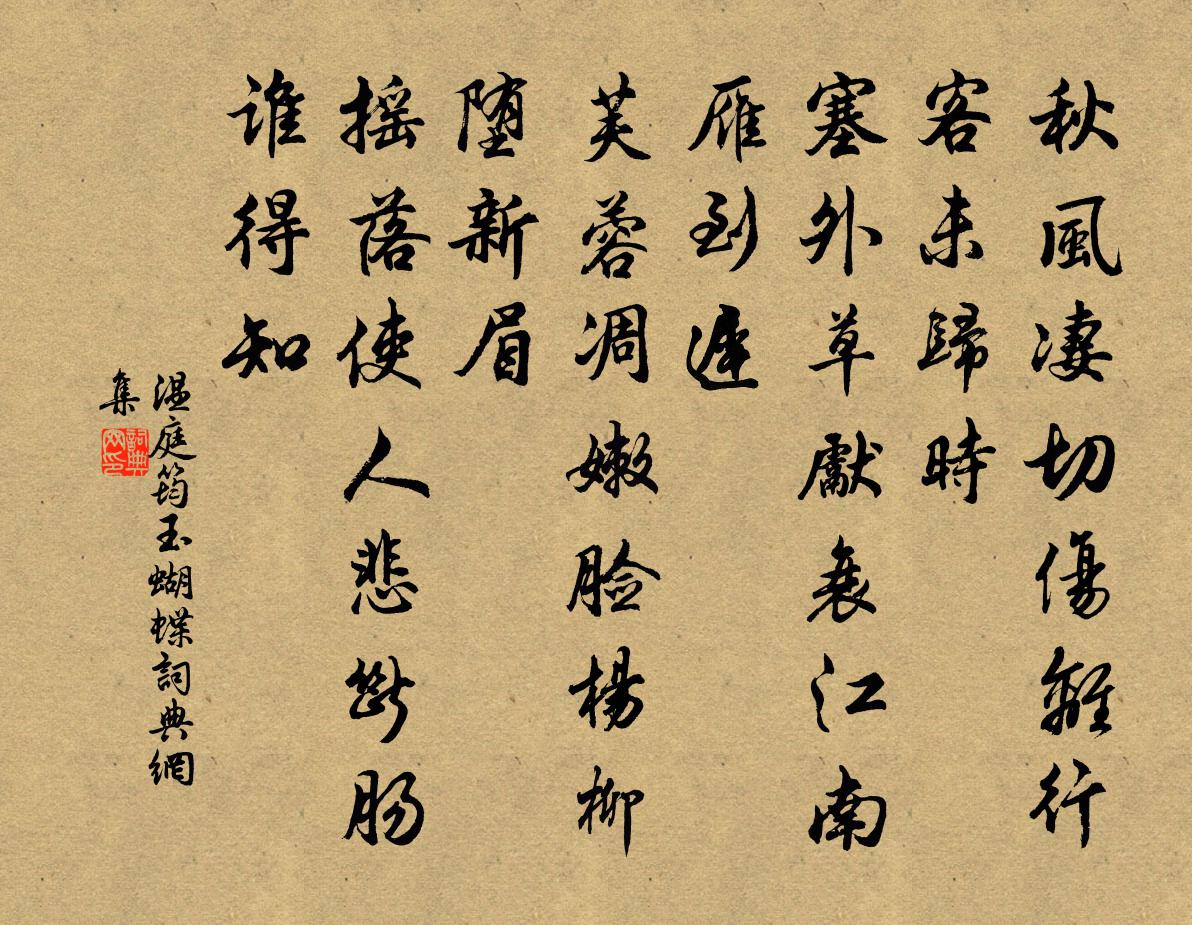 秋風凄切傷離行
客未歸時
塞外草獻衰江南
雁到遲
芙蓉凋嫩脸楊柳
堕新眉
摇落使人悲斷肠
谁得知
温庭筠玉蝴蝶詞典網
集
詞典
网印